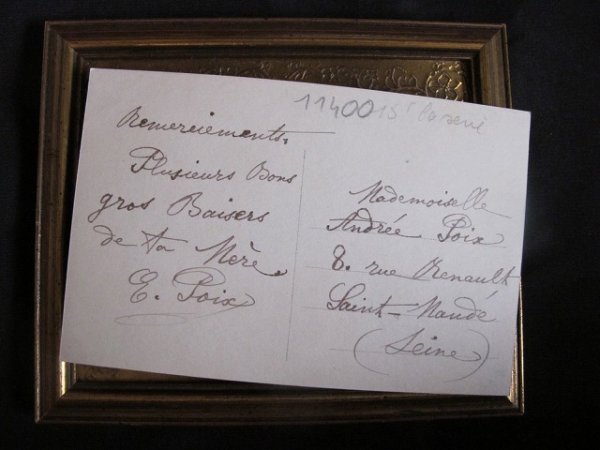 11400
Remerciements.
Plusieurs Bons
gros Baisers
de ta Mère.
E. Poix
Mademoiselle
Andrée Poix
8. rue Renault
Saint-Mandé
(Seine)